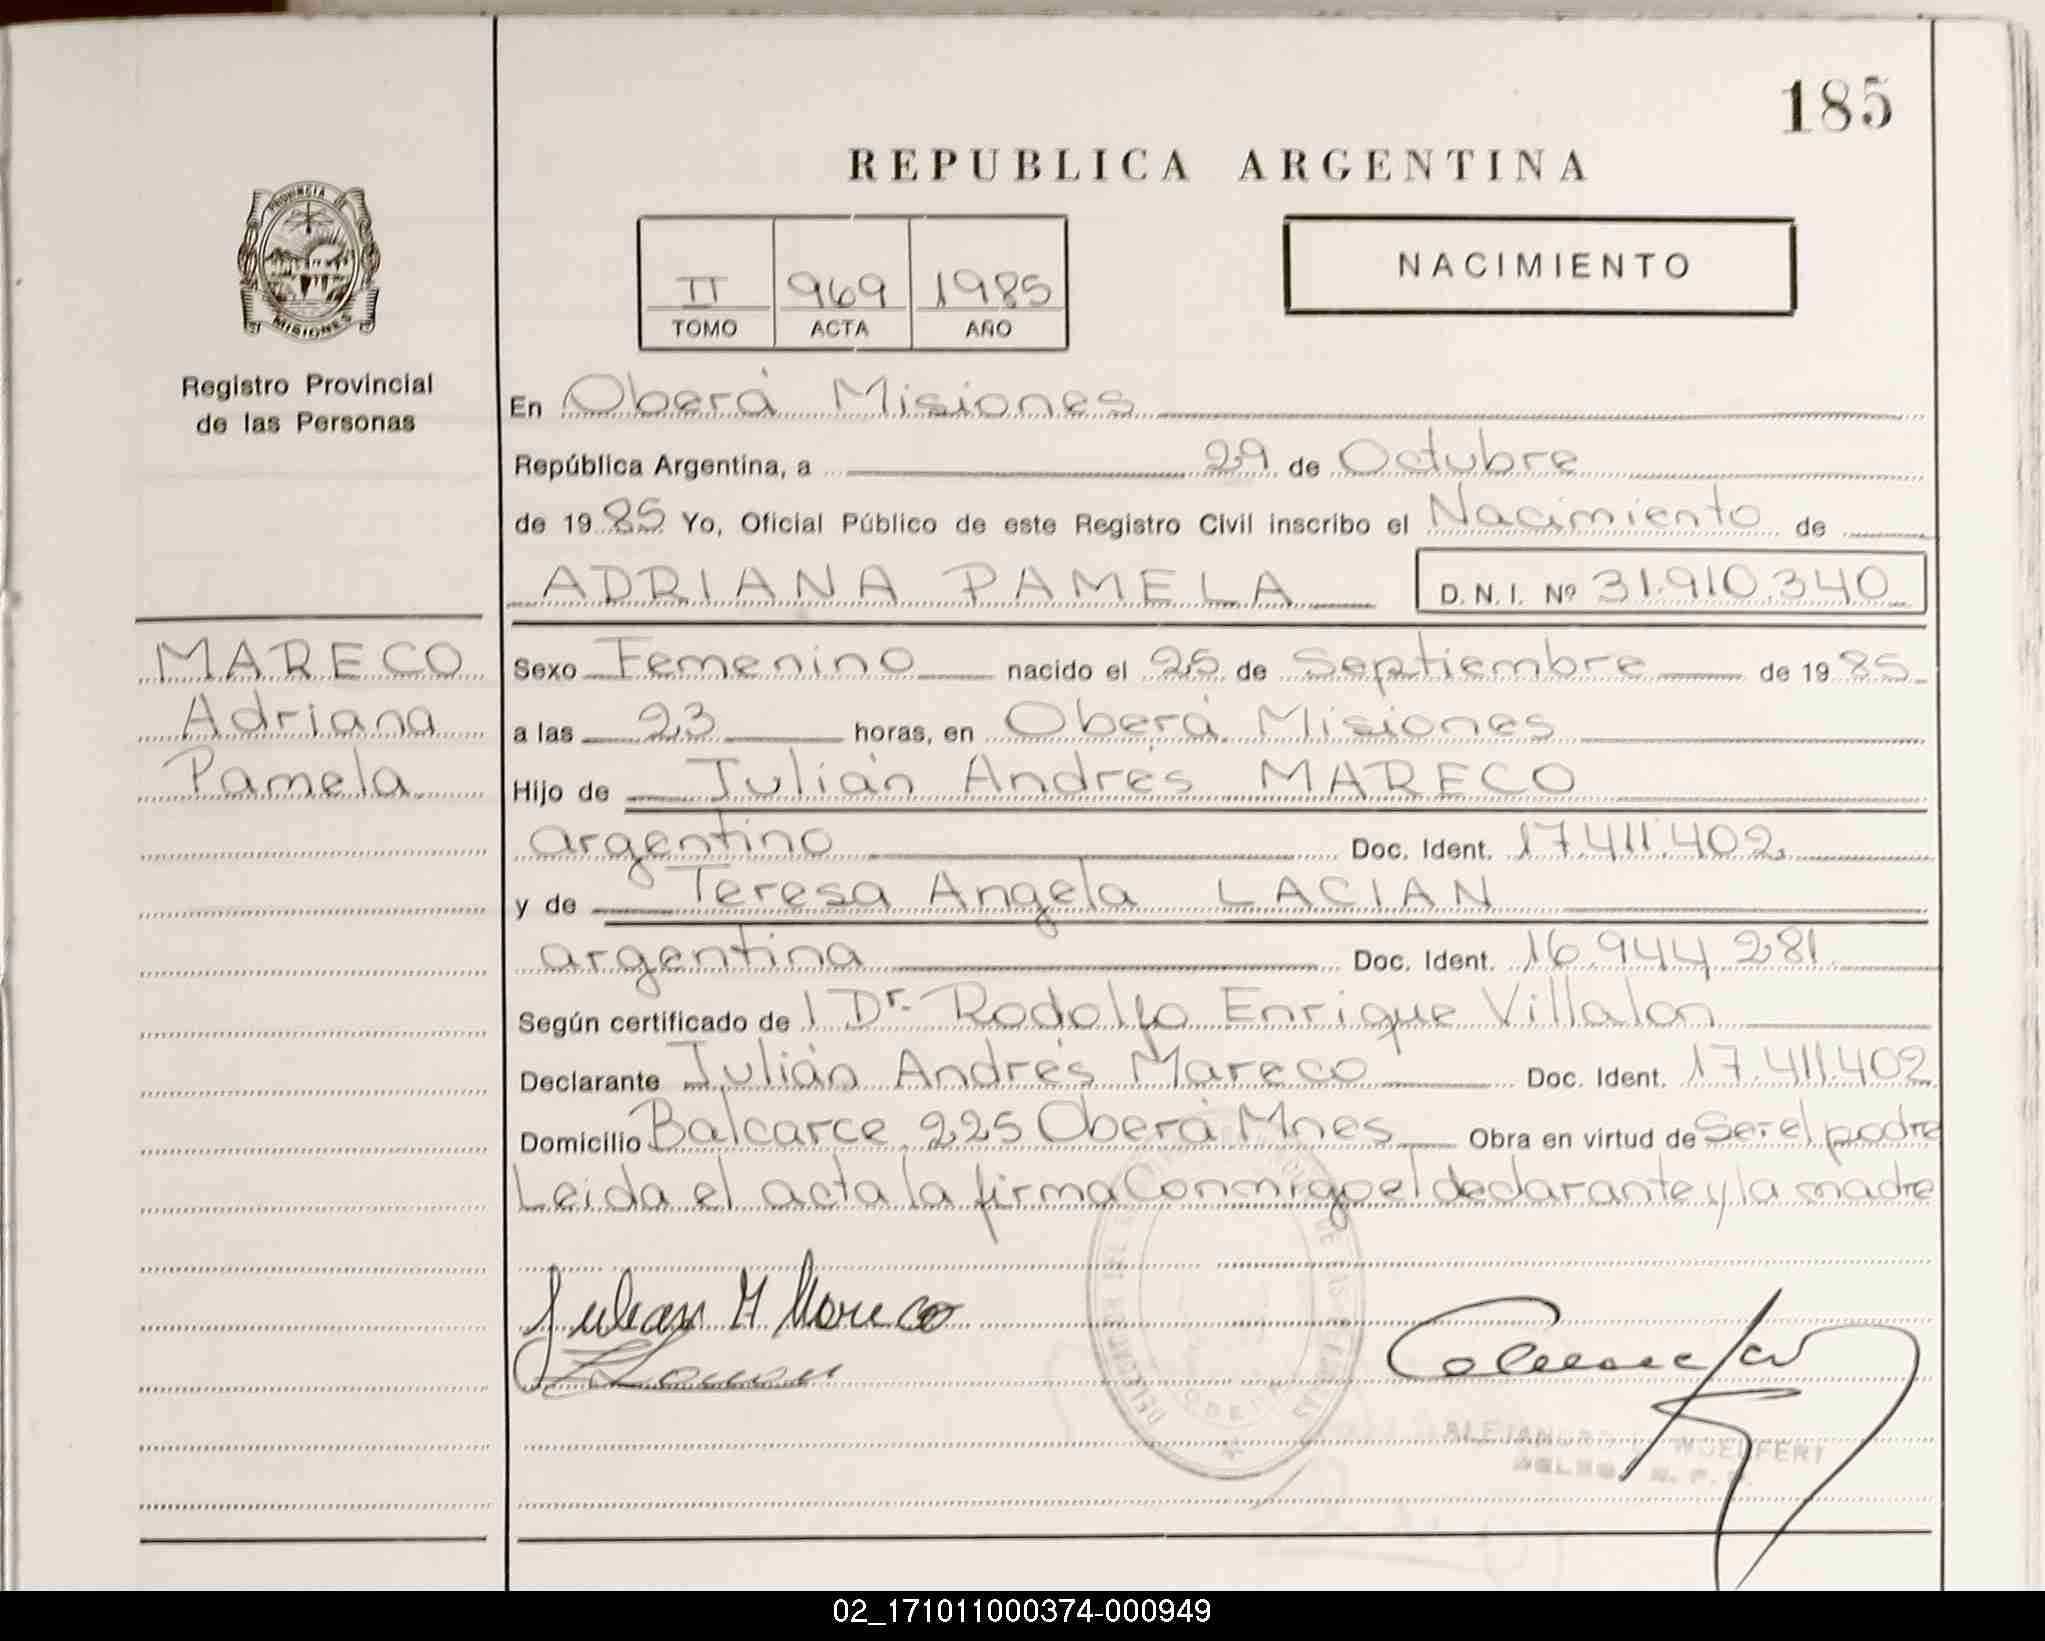 185
REPUBLICA ARGENTINA
PROVINCIA DE
MISIONES
II 969 1985
TOMO ACTA AÑO
NACIMIENTO
Registro Provincial
de las Personas
En Oberá Misiones
República Argentina, a 29 de Octubre
de 1985 Yo, Oficial Público de este Registro Civil inscribo el Nacimiento de
ADRIANA PAMELA D.N.I. Nº 31.910.340
MARECO
Adriana
Pamela
Sexo Femenino nacido el 25 de Septiembre de 1985
a las 23 horas, en Oberá Misiones
Hijo de Julián Andrés MARECO
argentino Doc. Ident. 17.411.402
y de Teresa Angela LACIAN
argentina Doc. Ident. 16.944.281
Según certificado de l Dr. Rodolfo Enrique Villalon
Declarante Julián Andrés Mareco Doc. Ident. 17.411.402
Domicilio Balcarce 225 Oberá Mnes Obra en virtud de Ser el padre
Leida el acta la firma Conmigo el declarante y la madre
Julian A Mareco
02_171011000374-000949